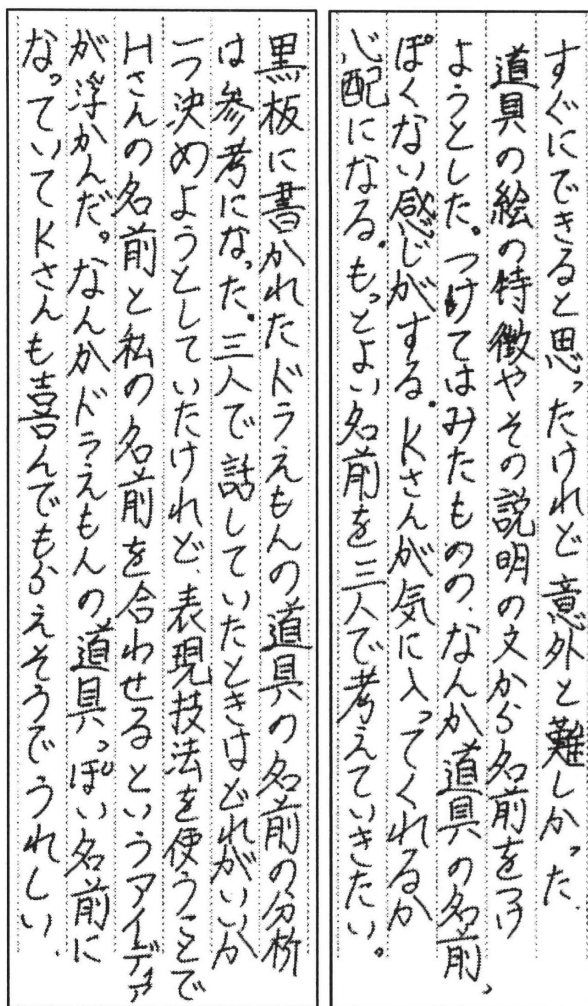 すぐにできると思ったけれど意外と難しかった、
道具の絵の特徴やその説明の文から名前をつけ
ようとした。つけてはみたものの、なんか道具の名前、
ぽくない感じがする。Kさんが気に入ってくれるか
心配になる。もっとよい名前を三人で考えていきたい。
黒板に書かれたドラえもんの道具の名前の分析
は参考になった。三人で話していたときはどれがいいか
一つ決めようとしていたけれど、表現技法を使うことで
Hさんの名前と私の名前を合わせるというアイデア
が浮かんだ。なんかドラえもんの道具っぽい名前に
なっていてKさんも喜んでもらえそうでうれしい、